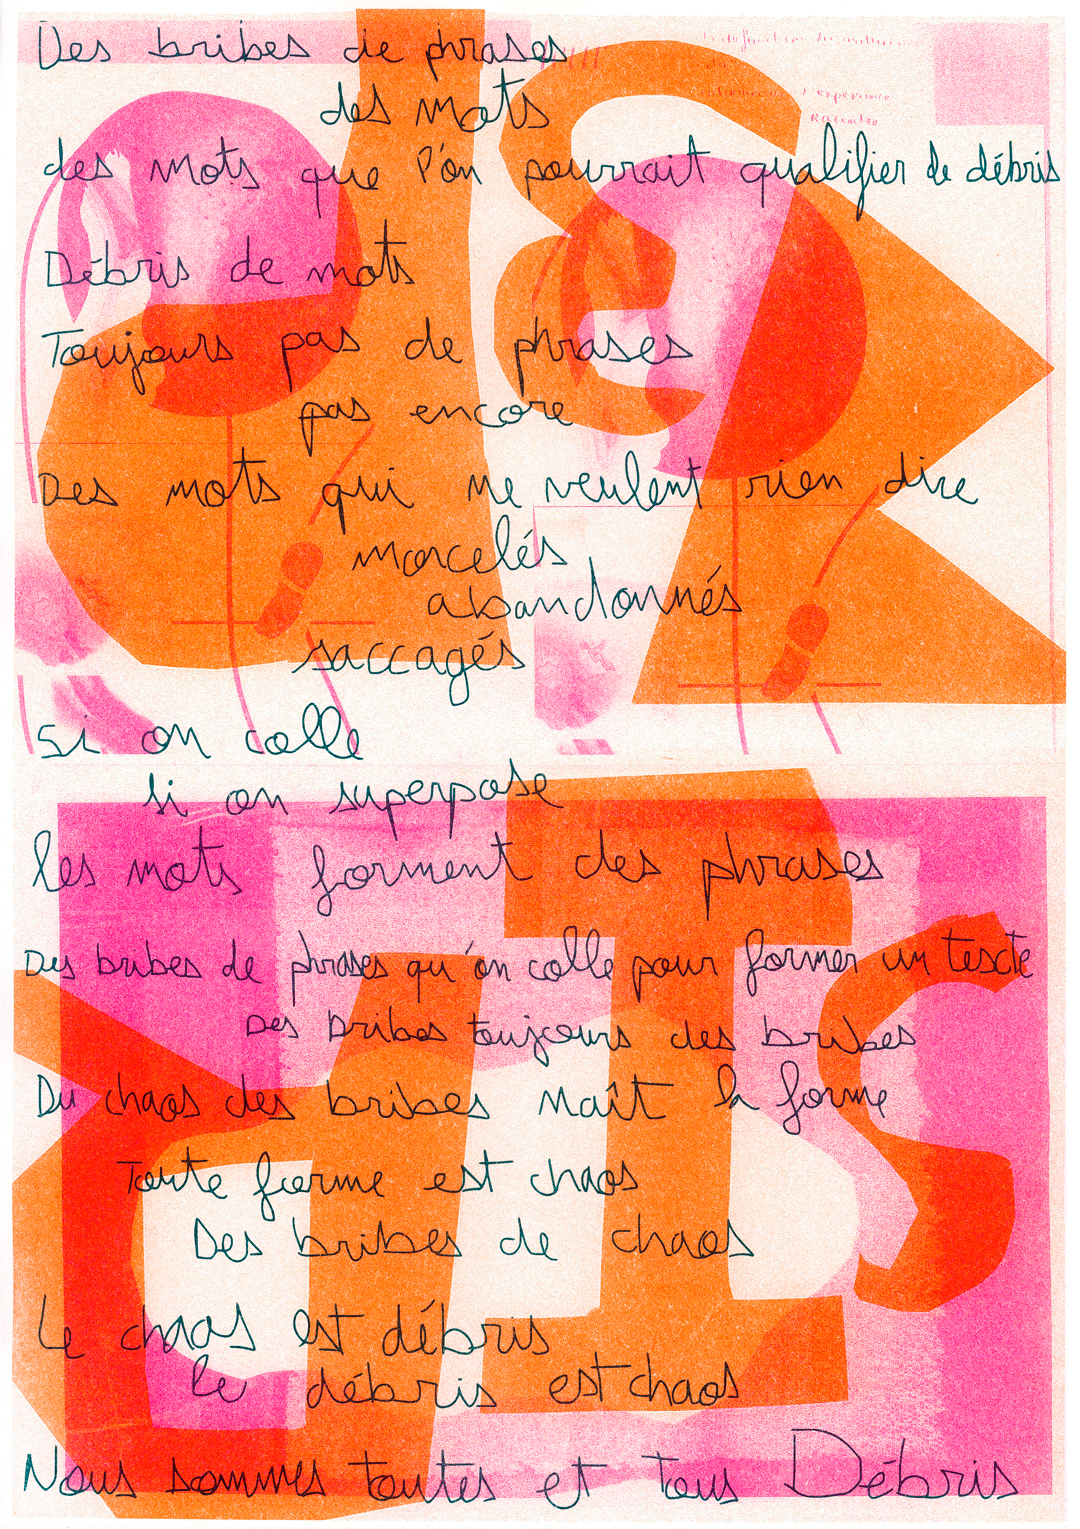 Des bribes de phrases
des mots
des mots que l'on pourrait qualifier de débris
Débris de mots
Toujours pas de phrases
pas encore
Des mots qui ne veulent rien dire
morcelés
abandonnés
saccagés
Si on colle
si on superpose
les mots forment des phrases
Des bribes de phrases qu'on colle pour former un texte
Des bribes toujours des bribes
Du chaos des bribes naît la forme
Toute forme est chaos
Des bribes de chaos
Le chaos est débris
le débris est chaos
Nous sommes toutes et tous Débris